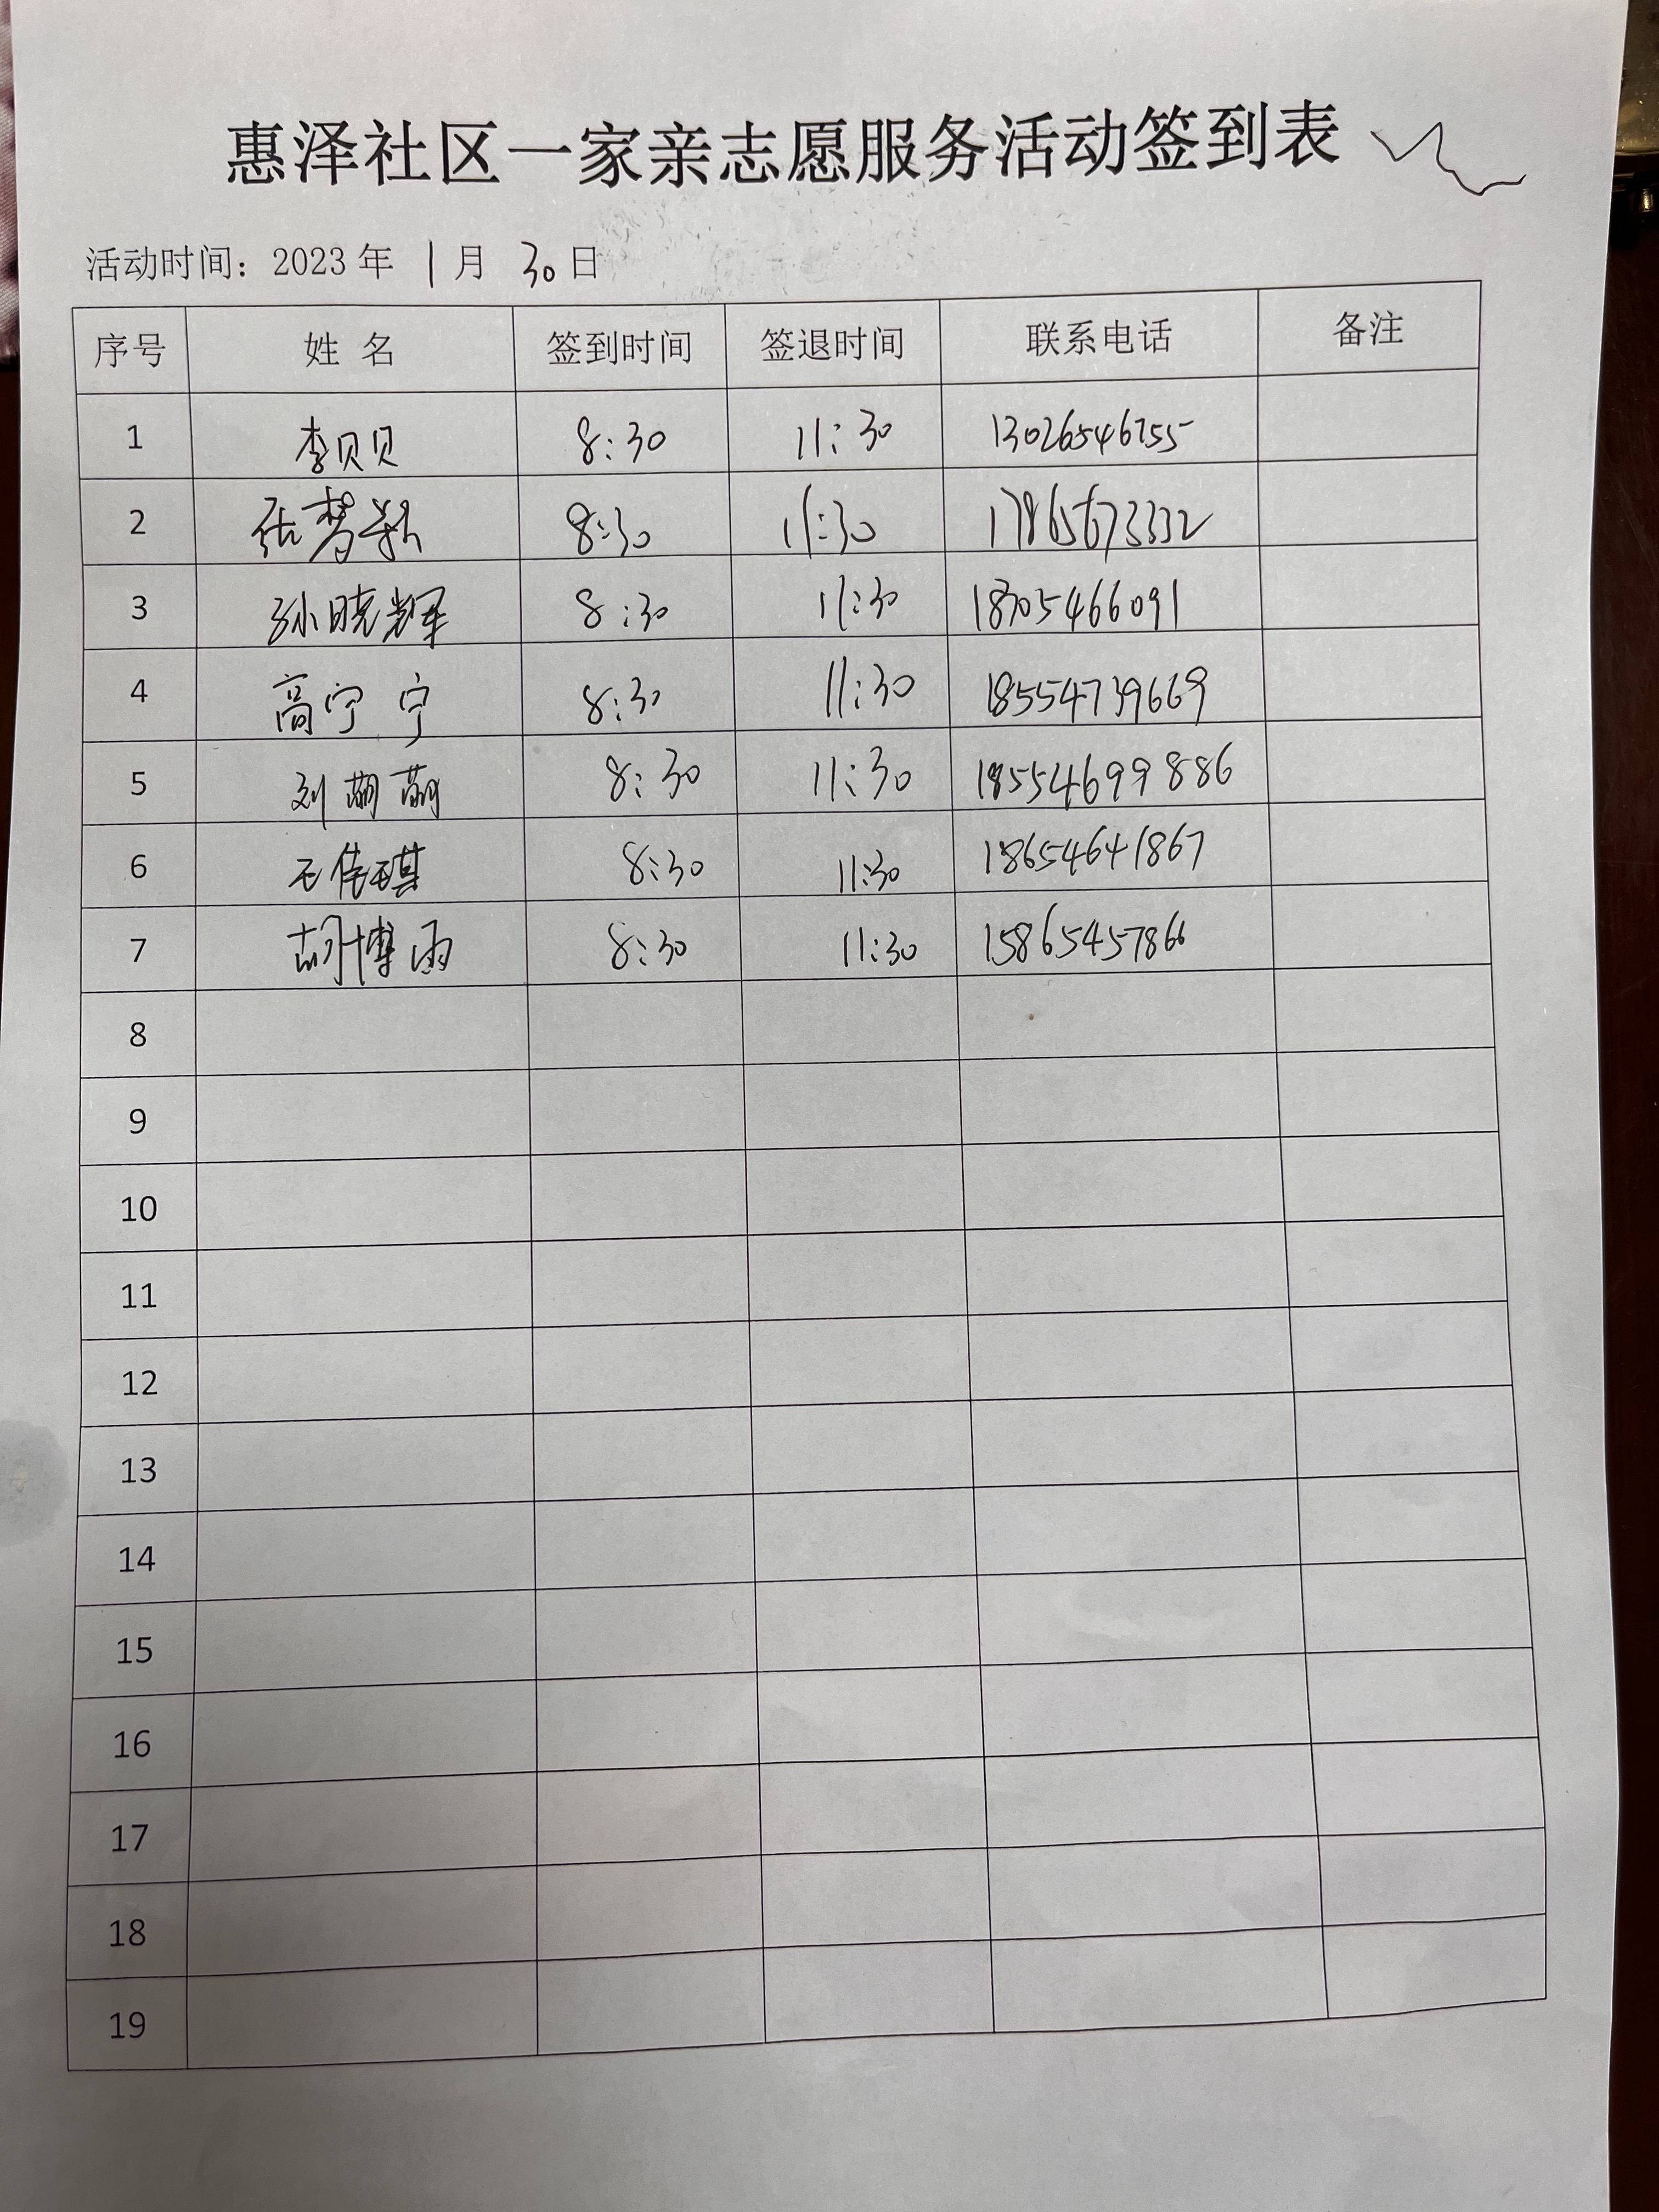 惠泽社区一家亲志愿服务活动签到表
活动时间：2023年 1月 30日
序号 姓 名 签到时间 签退时间 联系电话 备注
1 李贝贝 8:30 11:30 13026546755
2 张梦颖 8:30 11:30 17865673332
3 孙晓辉 8:30 11:30 18705466091
4 高宁宁 8:30 11:30 18554739669
5 刘萌萌 8:30 11:30 18554699886
6 王倩琪 8:30 11:30 18654641867
7 胡博雨 8:30 11:30 15865457866
8
9
10
11
12
13
14
15
16
17
18
19